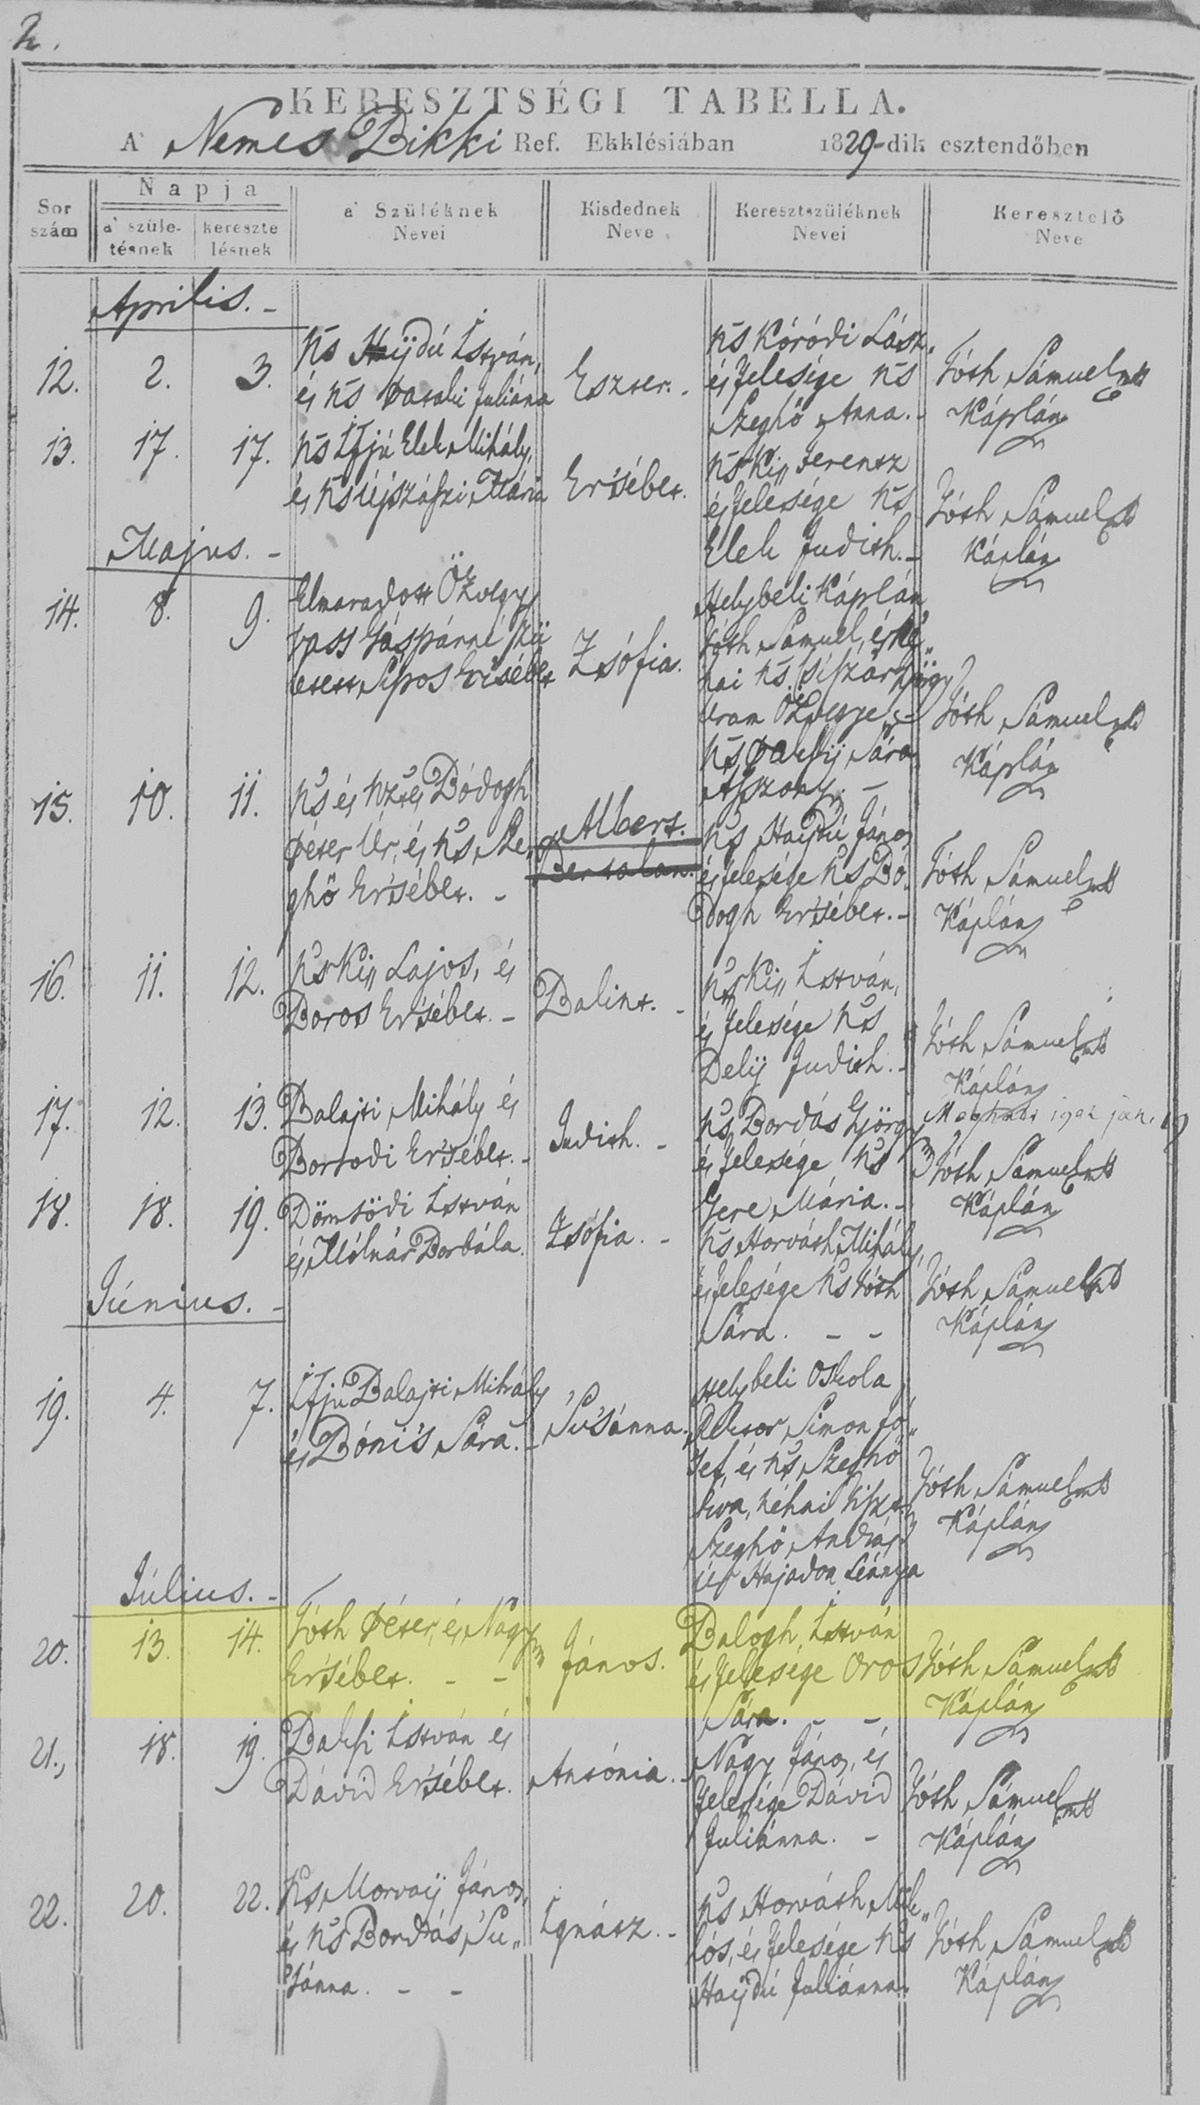 2.
KERESZTSÉGI TABELLA.
A' Nemes Bikki Ref. Ekklésiában 1829-dik esztendőben
Sor szám
Napja
a' születésnek
keresztelésnek
a' Szüléknek Nevei
Kisdednek Neve
Keresztszüléknek Nevei
Keresztelő Neve
Aprilis. -
12. 2. 3.
Ns Hajdú István,
és Ns Juliána
Eszter. -
Ns Kóródi Lász.
és felesége Ns
Szeghő Anna. -
Tóth Sámuel
Káplán
13. 17. 17.
Ns Ifjú Elek Mihály,
és Ns Újszászi Mária
Ersébet.
Ns Kiss Ferentz
és felesége Ns
Elek Judith. -
Tóth Sámuel
Káplán
Majus. -
14. 8. 9.
Elmaradott Özvegy
Vass Gáspárné
Sipos Ersébet
Zsófia.
Helybeli Káplán
Tóth Sámuel, és
Ns
uram Özvegye, -
Ns Pálfij Sára
Aszszony. -
Tóth Sámuel
Káplán
15. 10. 11.
Ns és Bódogh
Péter Úr, és Ns Sze-
ghő Ersébet. -
Albert.
Bertalan.
Ns Hajdú János
és felesége Ns Bó-
dogh Ersébet. -
Tóth Sámuel
Káplán
16. 11. 12.
Ns Kiss Lajos, és
Boros Ersébet. -
Bálint. -
Ns Kiss István,
és felesége Ns
Delij Judith. -
Tóth Sámuel
Káplán
17. 12. 13.
Balajti Mihály és
Borsodi Ersébet. -
Judith. -
Ns Bordás György
és felesége Ns
Gere Mária. -
Meghalt 1902 jan. 19
Tóth Sámuel
Káplán
18. 18. 19.
Dömsödi István
és Mólnár Borbála.
Zsófia. -
Ns Horváth Mihály,
és felesége Ns Tóth
Sára. - -
Tóth Sámuel
Káplán
Június. -
19. 4. 7.
Ifju Balajti Mihály
és Bónis Sára. -
'Su'sánna.
Helybeli Oskola
Rector Simon Jó-
'sef, és Ns Szeghő
Éva, néhai
Szeghő András
úr Hajadon Leánya
Tóth Sámuel
Káplán
Július. -
20. 13. 14.
Tóth Péter, és Nagy
Ersébet. - -
János.
Balogh István
és felesége Oros
Sára. - -
Tóth Sámuel
Káplán
21. 18. 19.
Pálfi István és
Dávid Ersébet.
Antónia. -
Nagy János, és
felesége Dávid
Juliánna. -
Tóth Sámuel
Káplán
22. 20. 22.
Ns Morvaij János,
és Ns Bordás 'Su-
'sánna. - -
Ignátz. -
Ns Horváth Mik-
lós, és felesége Ns
Hajdú Juliánna.
Tóth Sámuel
Káplán